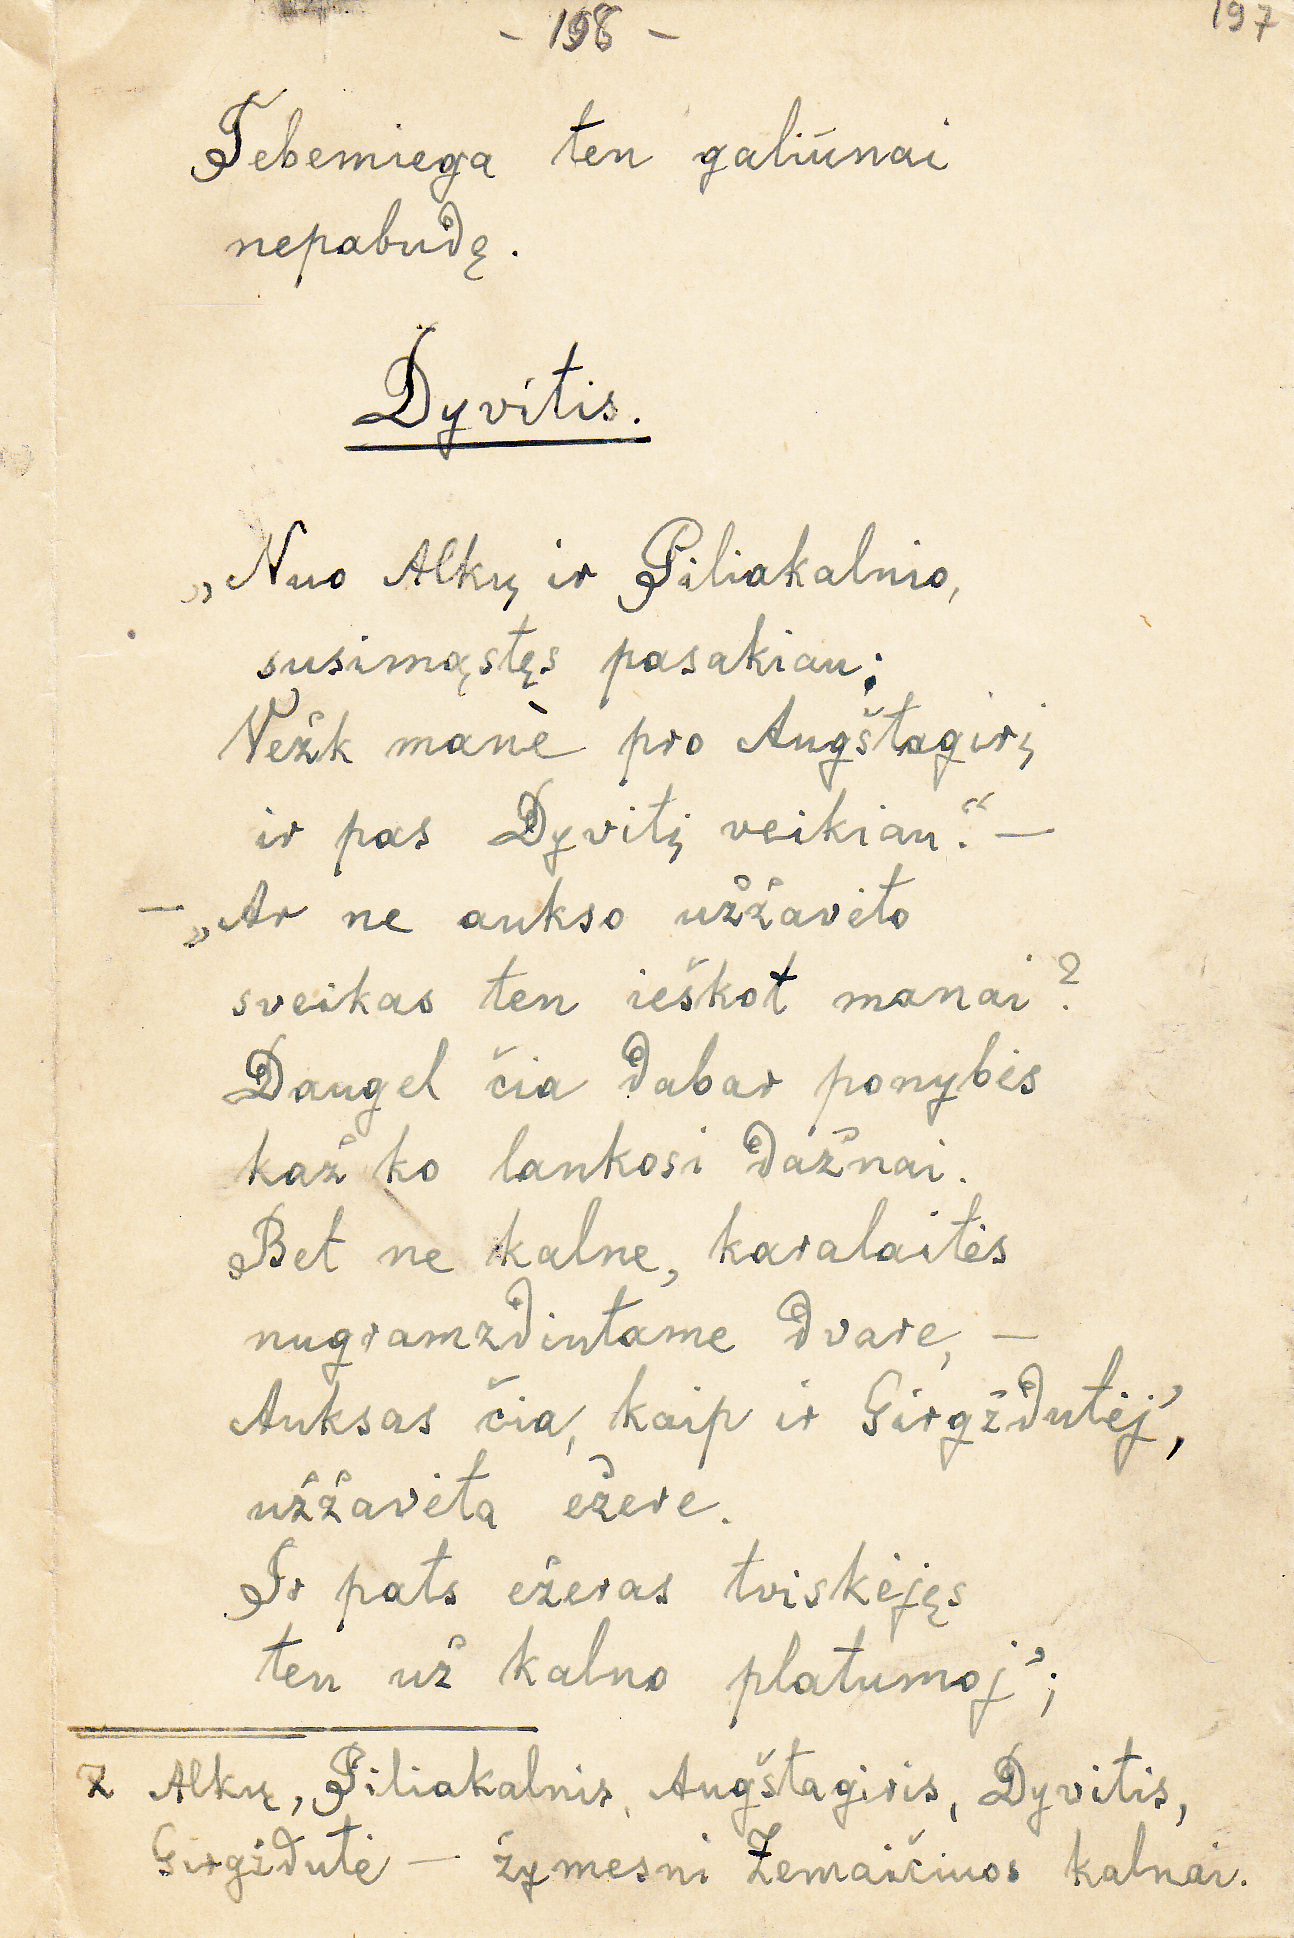 - 198 -
197
Tebemiega ten galiūnai
nepabudę.
Dyvitis.
„Nuo Alkų ir Piliakalnio,
susimąstęs pasakiau;
Vežk manè pro Augštagirį
ir pas Dyvitį veikiau.“ —
— „Ar ne aukso užžavėto
sveikas ten ieškot manai?
Daugel čia dabar ponybės
kaž ko lankosi dažnai.
Bet ne kalne, karalaitės
nugramzdintame dvare, —
Auksas čia, kaip ir Girgždutėj’,
užžavėta ežere.
Ir pats ežeras tviskėjęs
ten už kalno platumoj’;
Alkų, Piliakalnis, Augštagiris, Dyvitis,
Girgždutė — žymesni Žemaičiuos kalnai.